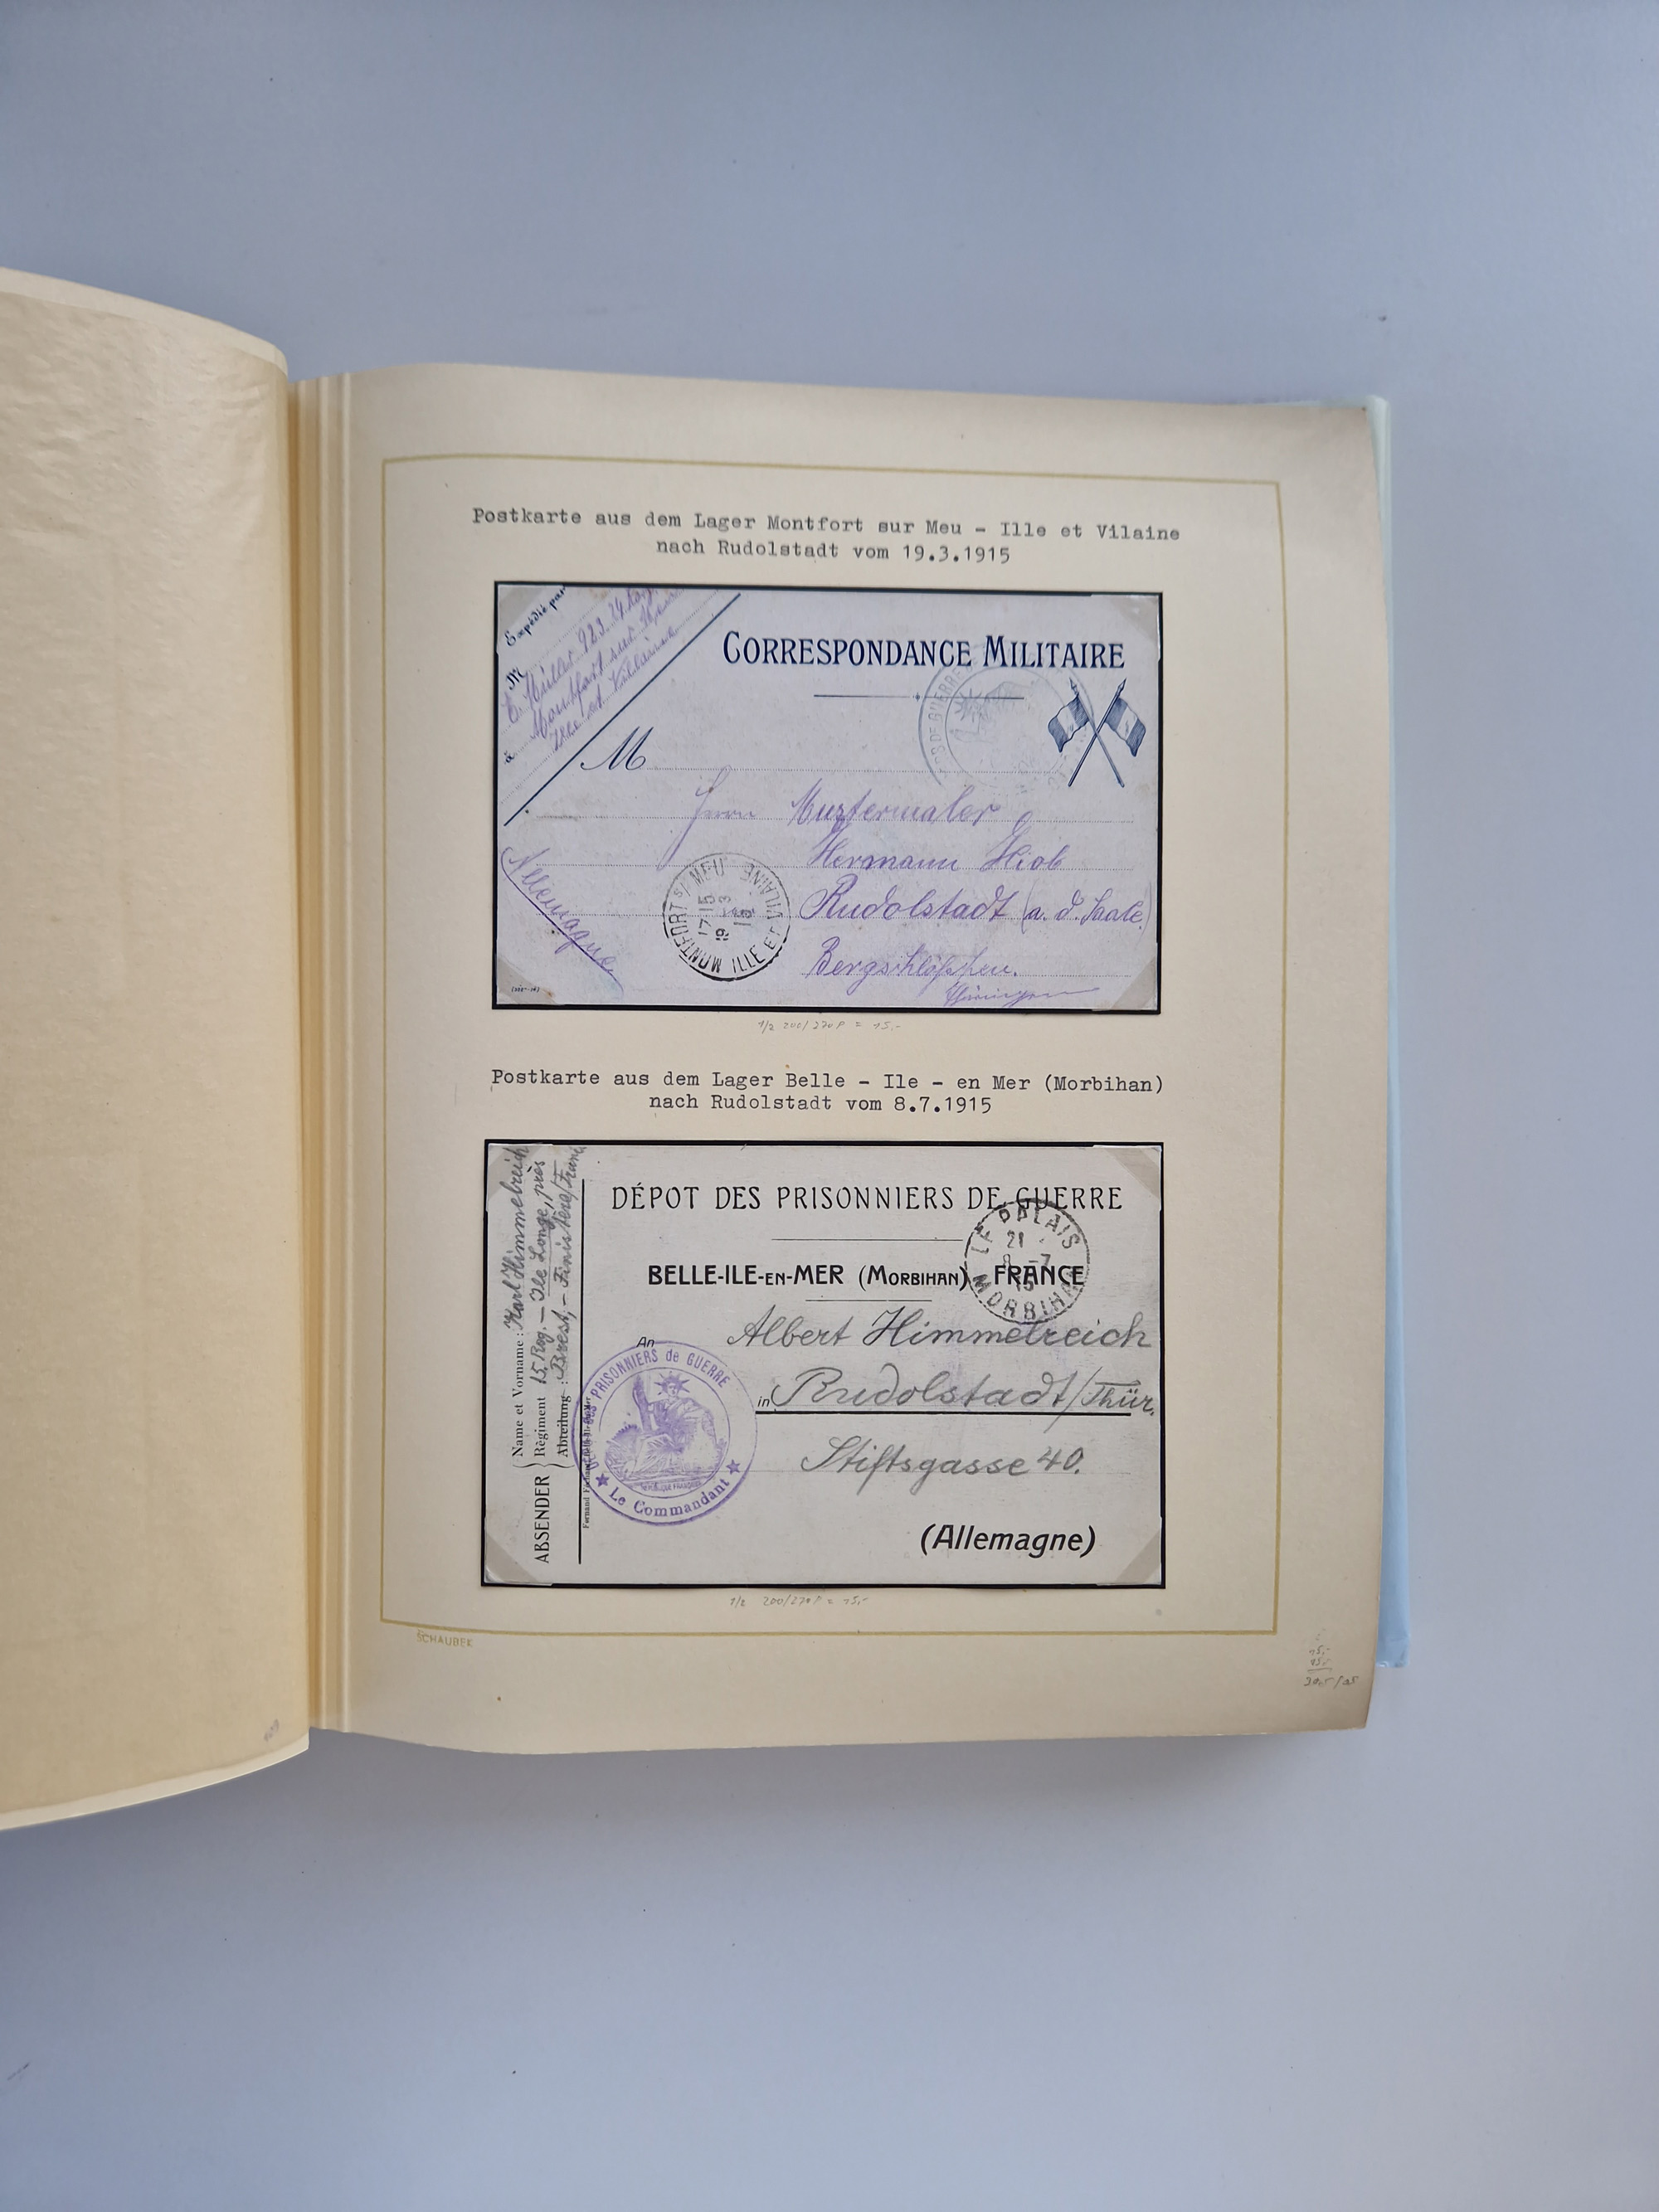 Postkarte aus dem Lager Montfort sur Meu - Ille et Vilaine
nach Rudolstadt vom 19.3.1915
Expédié par
M E. Müller 923
à Montfort sur Meu
Ille et Vilaine
CORRESPONDANCE MILITAIRE
DE GUERRE
M
Herrn Mustermaler
Hermann Hiob
Rudolstadt (a. d. Saale)
Bergschlößchen.
Thüringen
Allemagne
MONTFORT S/ MEU ILLE ET VILAINE
17-15
19-3
15
1/2 200/270P = 15.-
Postkarte aus dem Lager Belle - Ile - en Mer (Morbihan)
nach Rudolstadt vom 8.7.1915
ABSENDER
Name et Vorname: Karl Himmelreich
Régiment 15. Reg. - Ile Longe, près
Abteilung: Brest, - Finistère/
DÉPOT DES PRISONNIERS DE GUERRE
BELLE-ILE-EN-MER (MORBIHAN) FRANCE
LE PALAIS MORBIHAN
21
8-7
15
An Albert Himmelreich
in Rudolstadt/Thür.
Stiftsgasse 40.
(Allemagne)
des PRISONNIERS de GUERRE
REPUBLIQUE FRANÇAISE
★ Le Commandant ★
1/2 200/270P = 15.-
SCHAUBEK
15,-
15,-